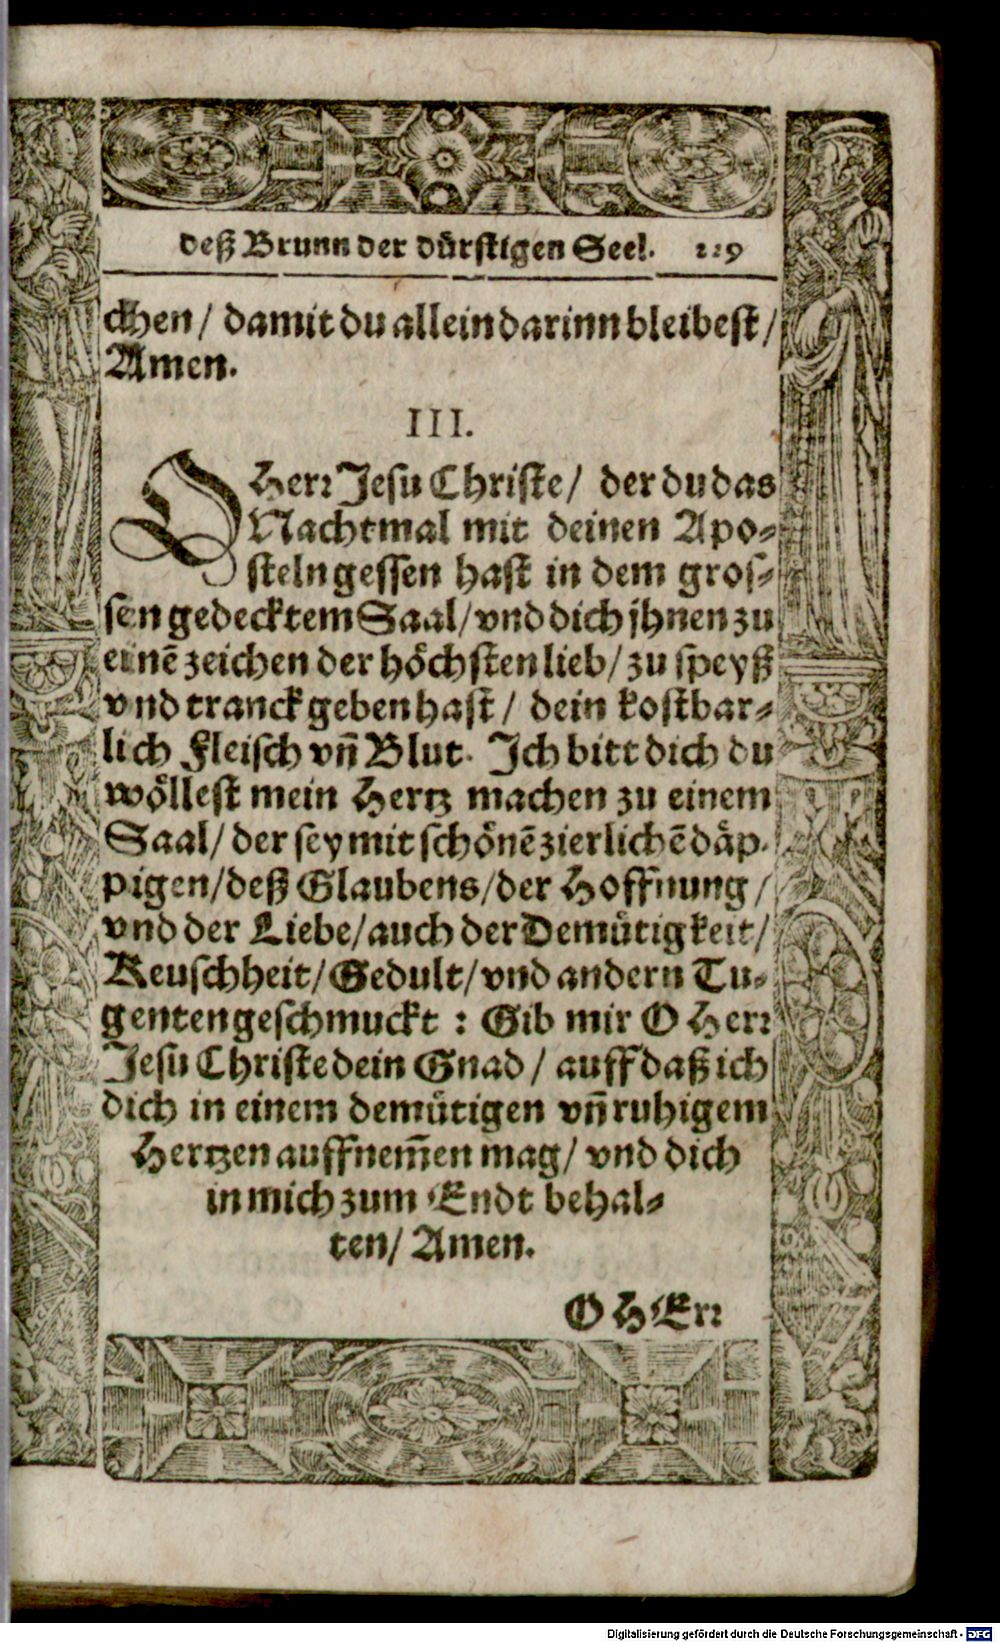 deß Brunn der dürstigen Seel. 119
chen/ damit du allein darinn bleibest/
Amen.
III.
O Herr Jesu Christe/ der du das
Nachtmal mit deinen Apo-
steln gessen hast in dem gros-
sen gedecktem Saal/ vnd dich jhnen zu
einē zeichen der höchsten lieb/ zu speyß
vnd tranck geben hast/ dein kostbar-
lich Fleisch vñ Blut. Ich bitt dich du
wöllest mein Hertz machen zu einem
Saal/ der sey mit schönē zierlichē däp-
pigen/ deß Glaubens/ der Hoffnung/
vnd der Liebe/ auch der Demütigkeit/
Keuschheit/ Gedult/ vnd andern Tu-
genten geschmuckt: Gib mir O Herr
Jesu Christe dein Gnad/ auff daß ich
dich in einem demütigen vñ ruhigem
Hertzen auffnem̄en mag/ vnd dich
in mich zum Endt behal-
ten/ Amen.
O HErr
Digitalisierung gefördert durch die Deutsche Forschungsgemeinschaft - DFG